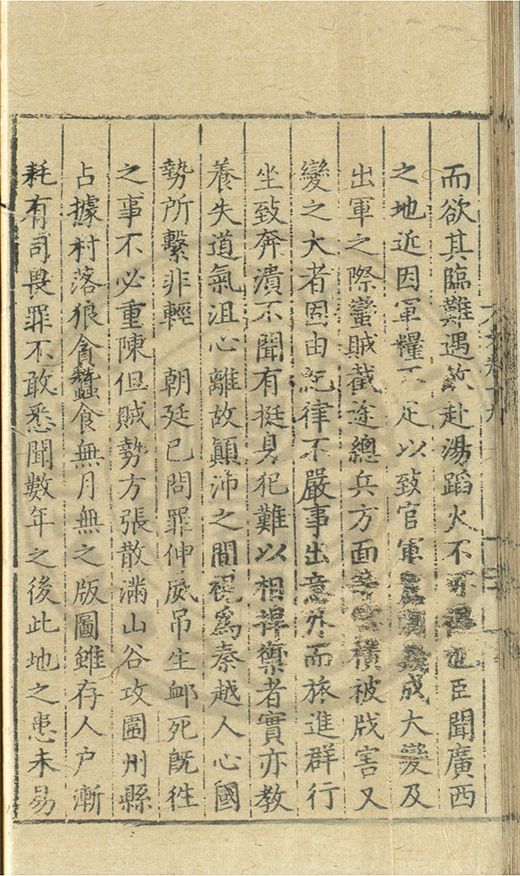 而欲其臨難遇敵赴湯蹈火不可得也臣聞廣西
之地近因軍糧不足以致官軍成大變及
出軍之際蠻賊截途總兵方面等官橫被戕害又
變之大者固由紀律不嚴事出意外而旅進群行
坐致奔潰不聞有挺身犯難以相捍禦者實亦教
養失道氣沮心離故顛沛之間視為秦越人心國
勢所繫非輕 朝廷已問罪伸威吊生卹死旣徃
之事不必重陳但賊勢方張散滿山谷攻圍州縣
占據村落狼貪蠶食無月無之版圖雖存人户漸
耗有司畏罪不敢悉聞數年之後此地之患未易